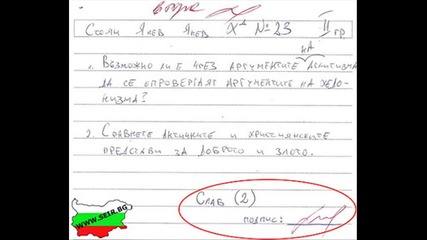 Стоян Янев Янев Xд №23 II гр
I
1. Възможно ли е чрез аргументите на аскетизма
да се опровергаят аргументите на хедо-
низма?
2. Сравнете античните и християнските
представи за доброто и злото.
Слаб (2)
подпис:
www.seir.bg